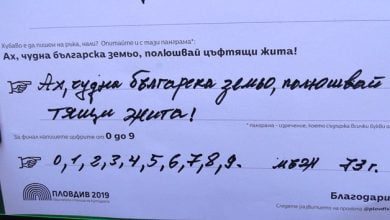 Хубаво е да пишем на ръка, нали? Опитайте и с тази панграма*:
Ах, чудна българска земьо, полюшвай цъфтящи жита!
Ах, чудна българска земьо, полюшвай
тящи жита!
* панграма - изречение, което съдържа всички букви о
За финал напишете цифрите от 0 до 9
0,1,2,3,4,5,6,7,8,9. мъж 73 г.
ПЛОВДИВ 2019
Благодари
Следете развитието на проекта